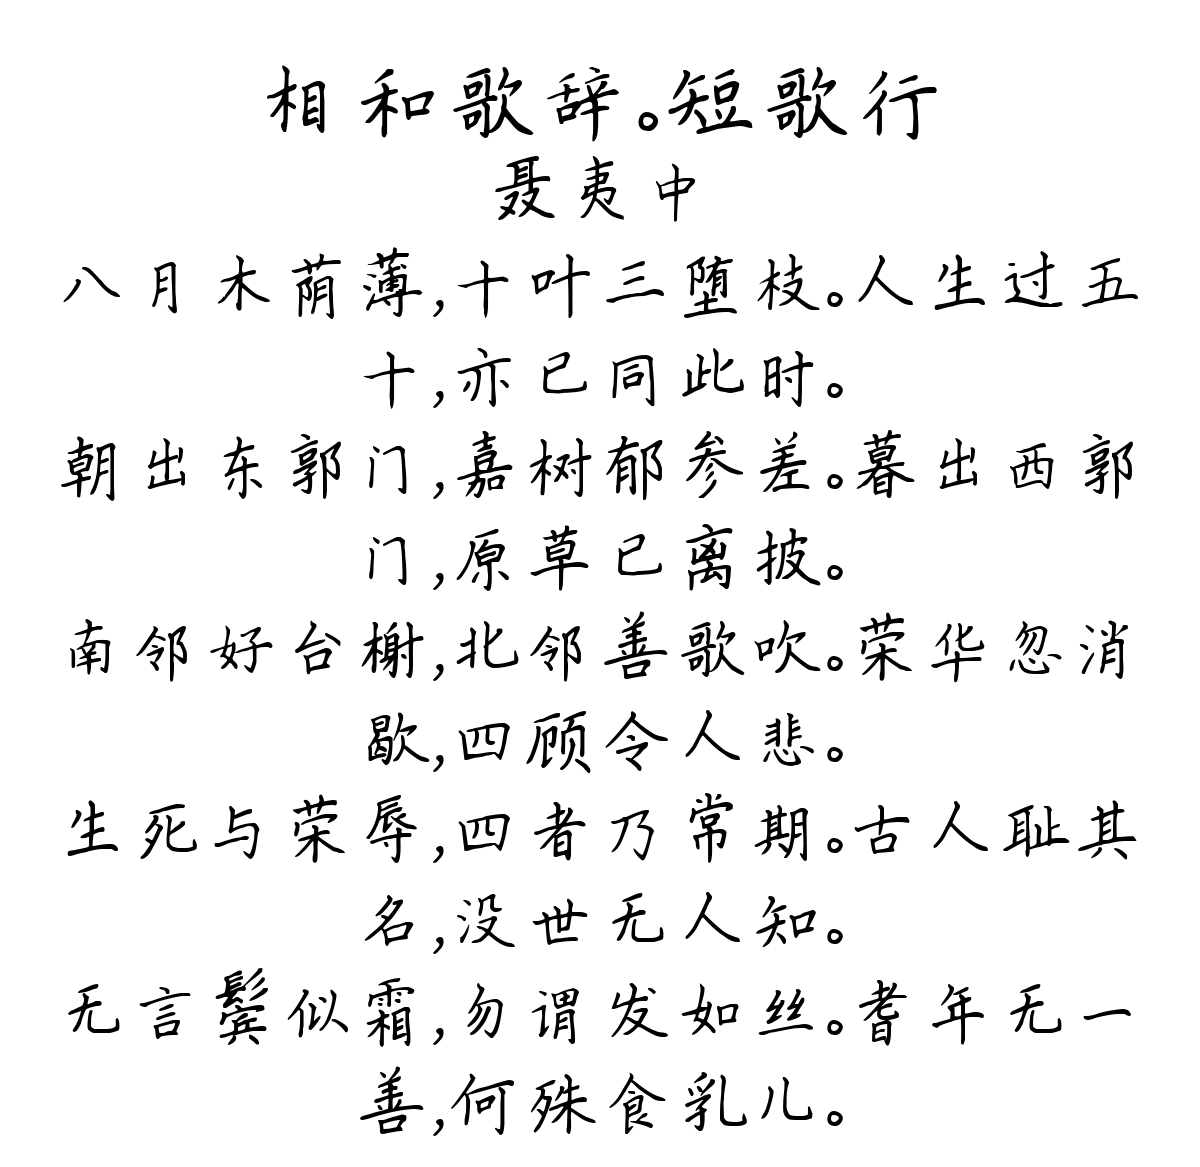 相和歌辞。短歌行
聂夷中
八月木荫薄,十叶三堕枝。人生过五
十,亦已同此时。
朝出东郭门,嘉树郁参差。暮出西郭
门,原草已离披。
南邻好台榭,北邻善歌吹。荣华忽消
歇,四顾令人悲。
生死与荣辱,四者乃常期。古人耻其
名,没世无人知。
无言鬓似霜,勿谓发如丝。耆年无一
善,何殊食乳儿。